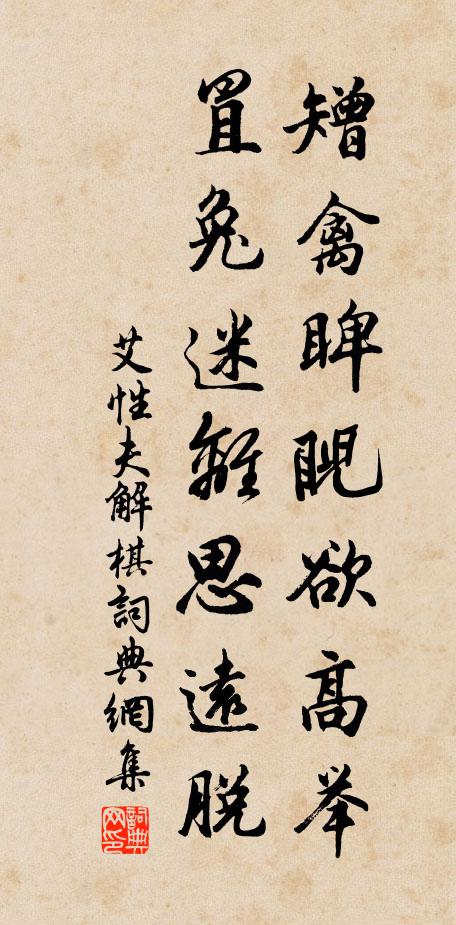 矰禽睥睨欲高举
罝兔迷離思遠脱
艾性夫解棋詞典網集
詞典網印